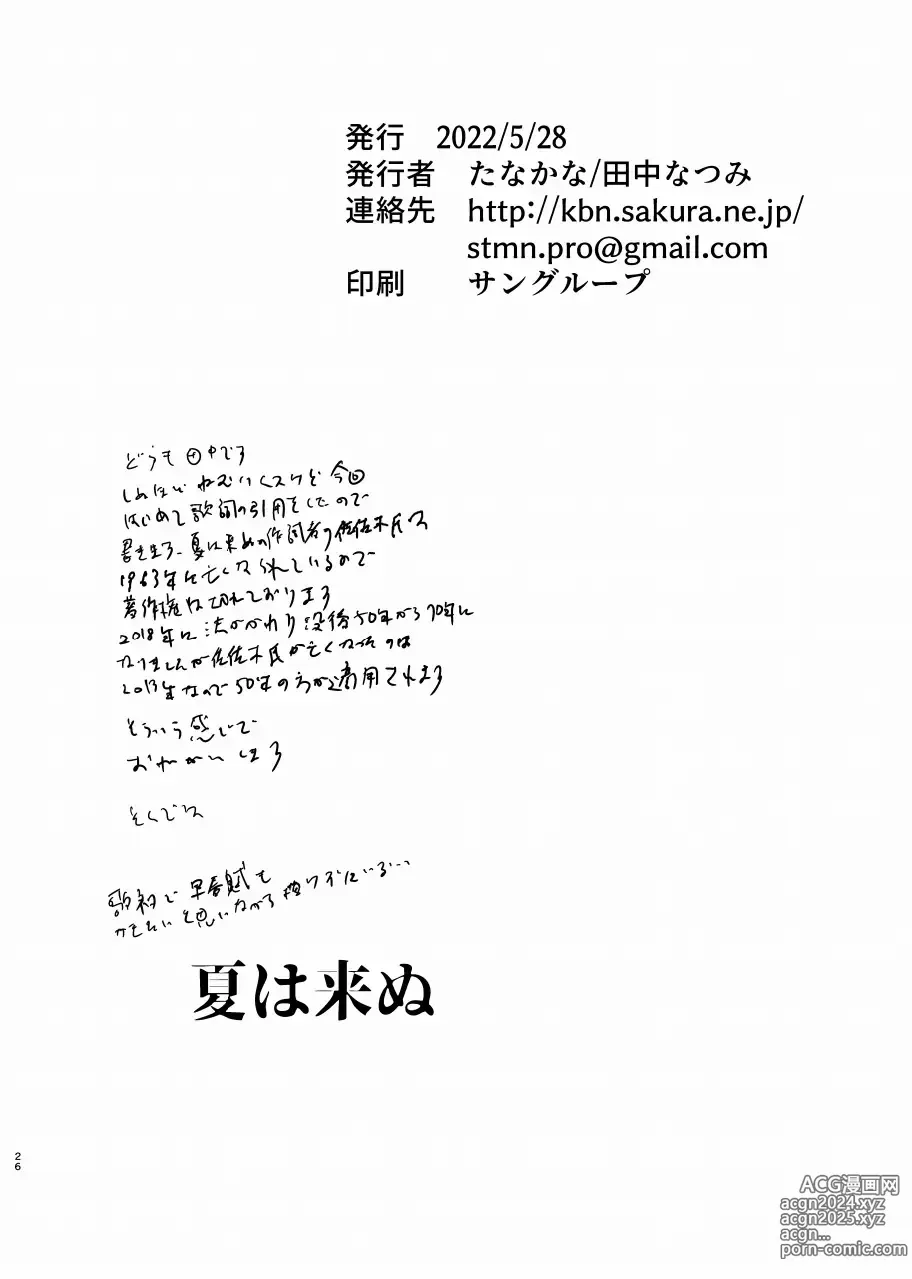 発行　2022/5/28
発行者　たなかな/田中なつみ
連絡先　http://kbn.sakura.ne.jp/
stmn.pro@gmail.com
印刷　サングループ
どうも田中です
しぬほどねむいんスけど今回
はじめて歌詞の引用をしたので
書きます、夏は来ぬの作詞者の佐佐木氏は
1963年に亡くなられているので
著作権は切れております
2018年に法がかわり没後50年から70年に
なりましたが佐佐木氏が亡くなったのは
2013年なので50年の方が適用されます
そういう感じで
おねがいします
そくでは
早春賦も
と思いながら描けずにいる…
夏は来ぬ
26
ACG漫画网
acgn2024.xyz
acgn2025.xyz
acgn...
porn-comic.com